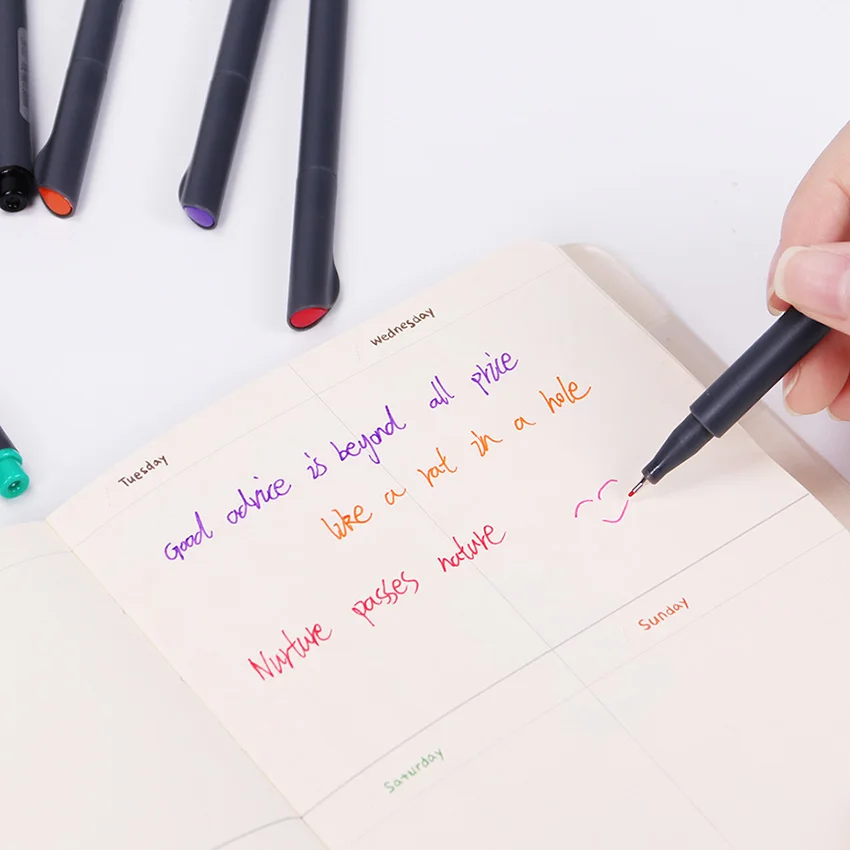 Wednesday
Tuesday
Good advice is beyond all price
like a rat in a hole
Nurture passes nature
Sunday
Saturday